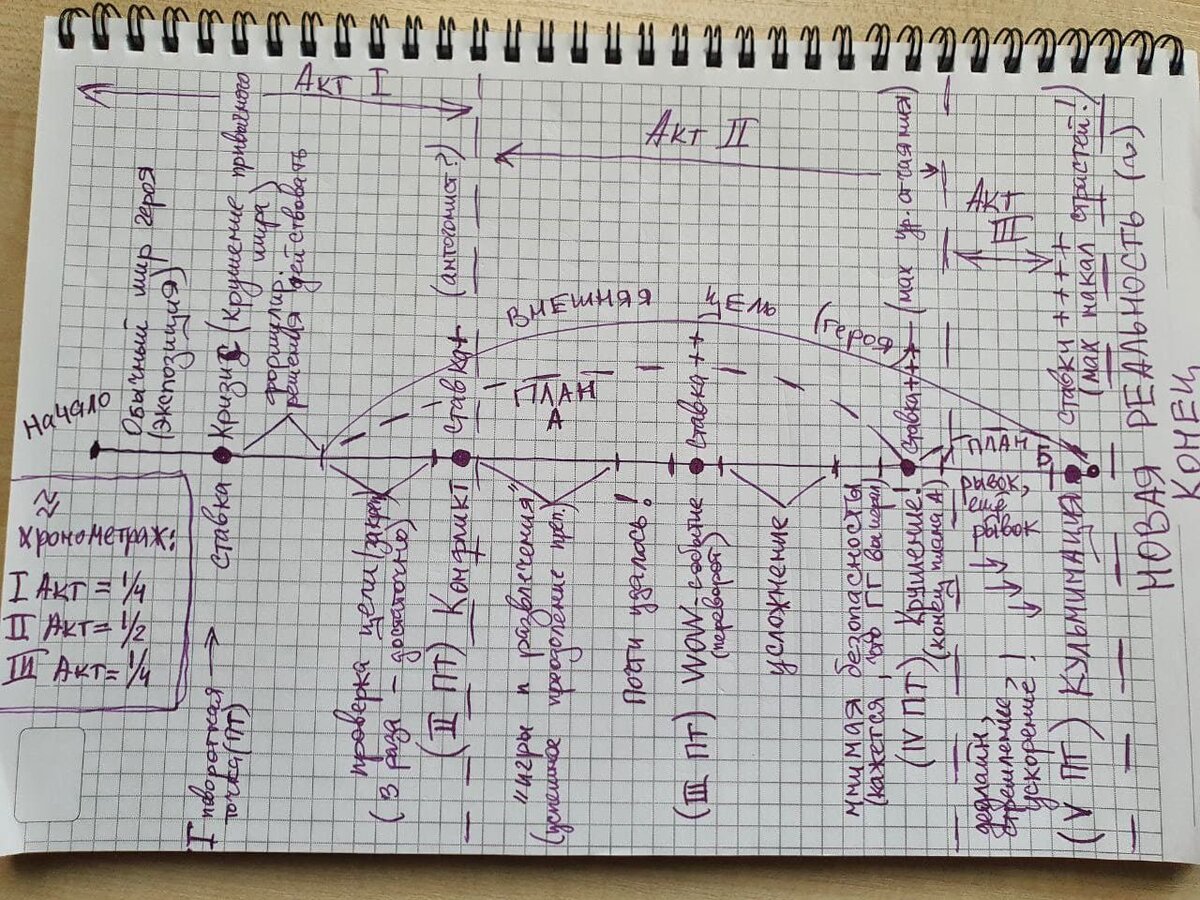 ≈
Хронометраж:
I Акт = 1/4
II Акт = 1/2
III Акт = 1/4
Акт I
Акт II
Акт
III
Начало
Обычный мир героя
(экспозиция)
I поворотная
точка (ПТ)
ставка
Кризис (крушение привычного
мира)
формулир.
решения действовать
проверка цели
(3 раза - достаточно)
(II ПТ) Конфликт
ставка +
(антогонист?)
"игры и развлечения"
(успешное преодоление преп.)
ПЛАН
А
ВНЕШНЯЯ
ЦЕЛЬ
(героя)
Почти удалось!
(III ПТ) WOW-событие
(переворот)
ставка ++
усложнение
мнимая безопасность
(кажется, что ГГ выиграл)
(IV ПТ) Крушение!
(конец плана А)
ставка +++ (мах ур. отчаяния)
ПЛАН
Б
рывок,
ещё
рывок
дедлайн,
стремление,
ускорение!
(V ПТ) КУЛЬМИНАЦИЯ
ставки ++++
(мах накал страстей!)
НОВАЯ РЕАЛЬНОСТЬ (~)
КОНЕЦ